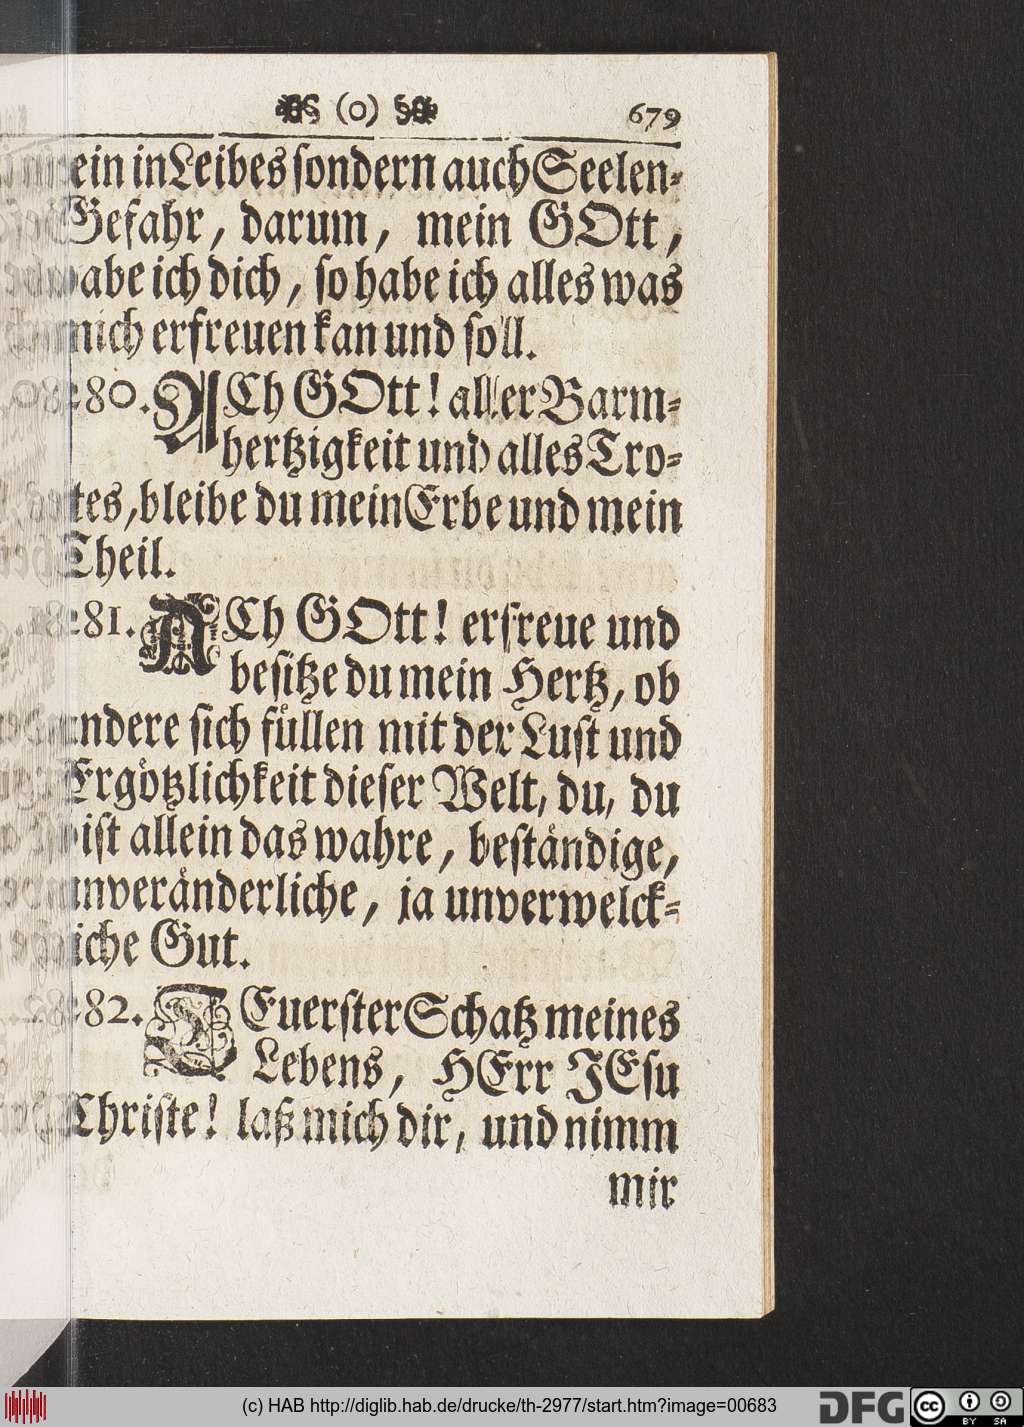 (o) 679
ein in Leibes sondern auch Seelen-
Gefahr, darum, mein GOtt,
habe ich dich, so habe ich alles was
mich erfreuen kan und soll.
80. ACh GOtt! aller Barm-
hertzigkeit und alles Tro-
stes, bleibe du mein Erbe und mein
Theil.
81. ACh GOtt! erfreue und
besitze du mein Hertz, ob
andere sich füllen mit der Lust und
Ergötzlichkeit dieser Welt, du, du
bist allein das wahre, beständige,
unveränderliche, ja unverwelck-
liche Gut.
82. TEuerster Schatz meines
Lebens, HErr JEsu
Christe! laß mich dir, und nimm
mir
(c) HAB http://diglib.hab.de/drucke/th-2977/start.htm?image=00683
DFG cc BY SA